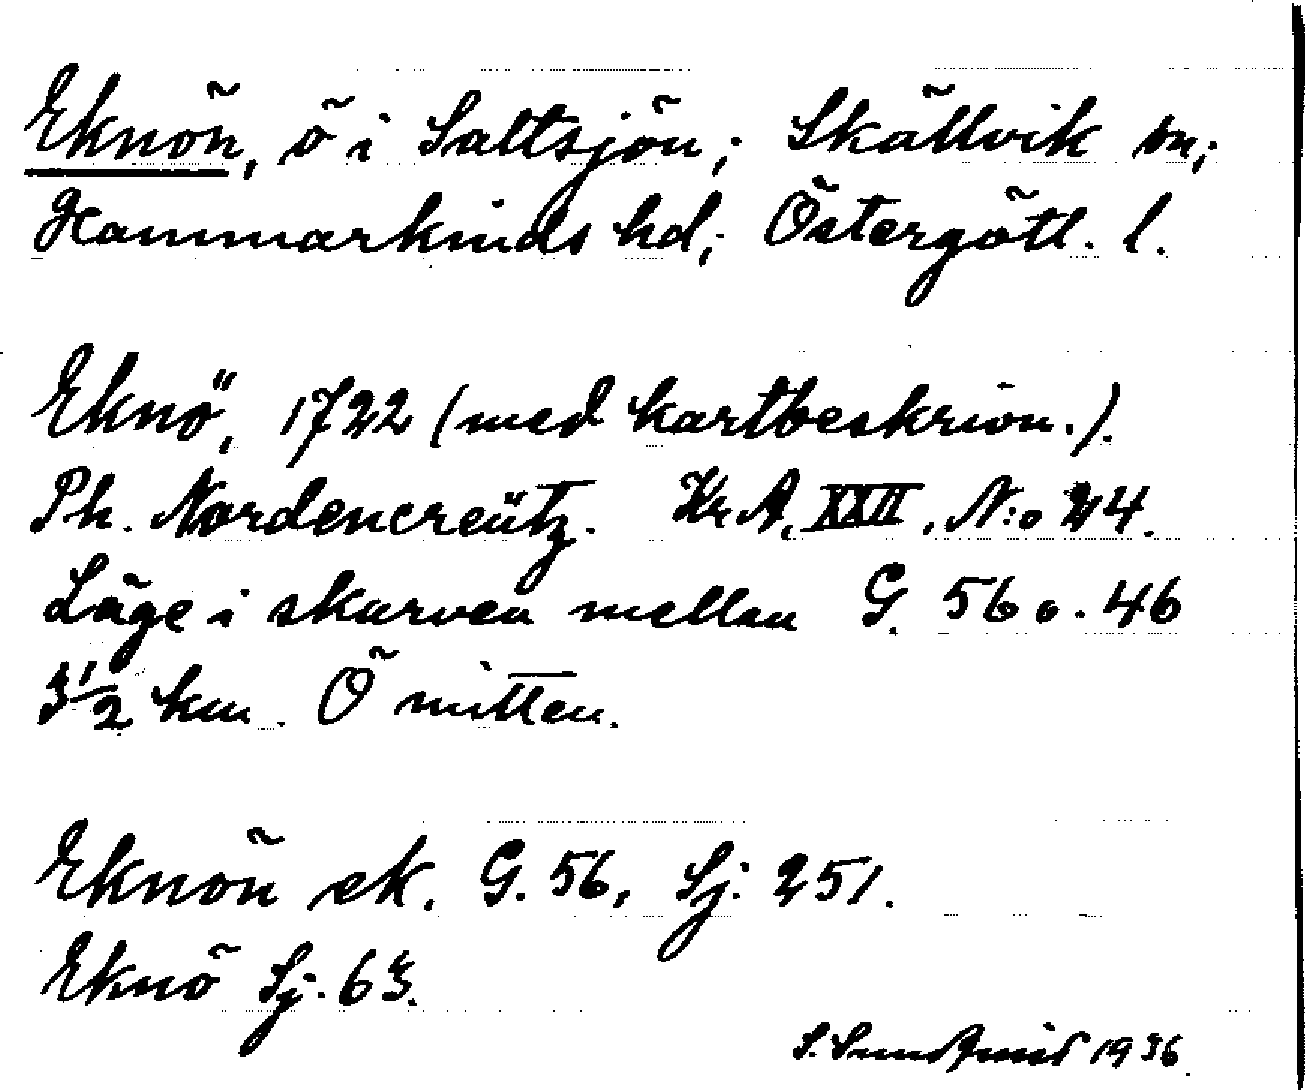 Eknön, ö i Saltsjön; Skällvik sn;
Hammarkinds hd; Östergötl. l.
Eknö, 1722 (med kartbeskrivn.).
Ph. Nordencreütz. Kr A, XXII, N:o 24.
Läge i skarven mellan G. 56 o. 46
3 1/2 km. Ö mitten.
Eknön ek. G. 56, Sj: 251.
Eknö Sj. 63.
S. Sundqvist 1936